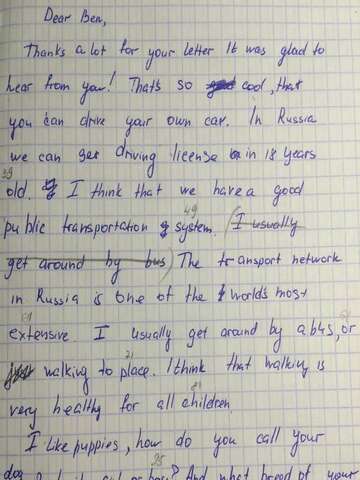 Dear Ben,
Thanks a lot for your letter It was glad to
hear from you! That's so cool, that
you can drive your own car. In Russia
we can get driving license in 18 years
39
old. I think that we have a good
49
public transportation system. (I usually
get around by bus) The transport network
in Russia is one of the world's most
61
extensive. I usually get around by a bus, or
71
walking to place. I think that walking is
81
very healthy for all children.
I like puppies, how do you call your
95
dog? Is it girl or boy? And what breed of your